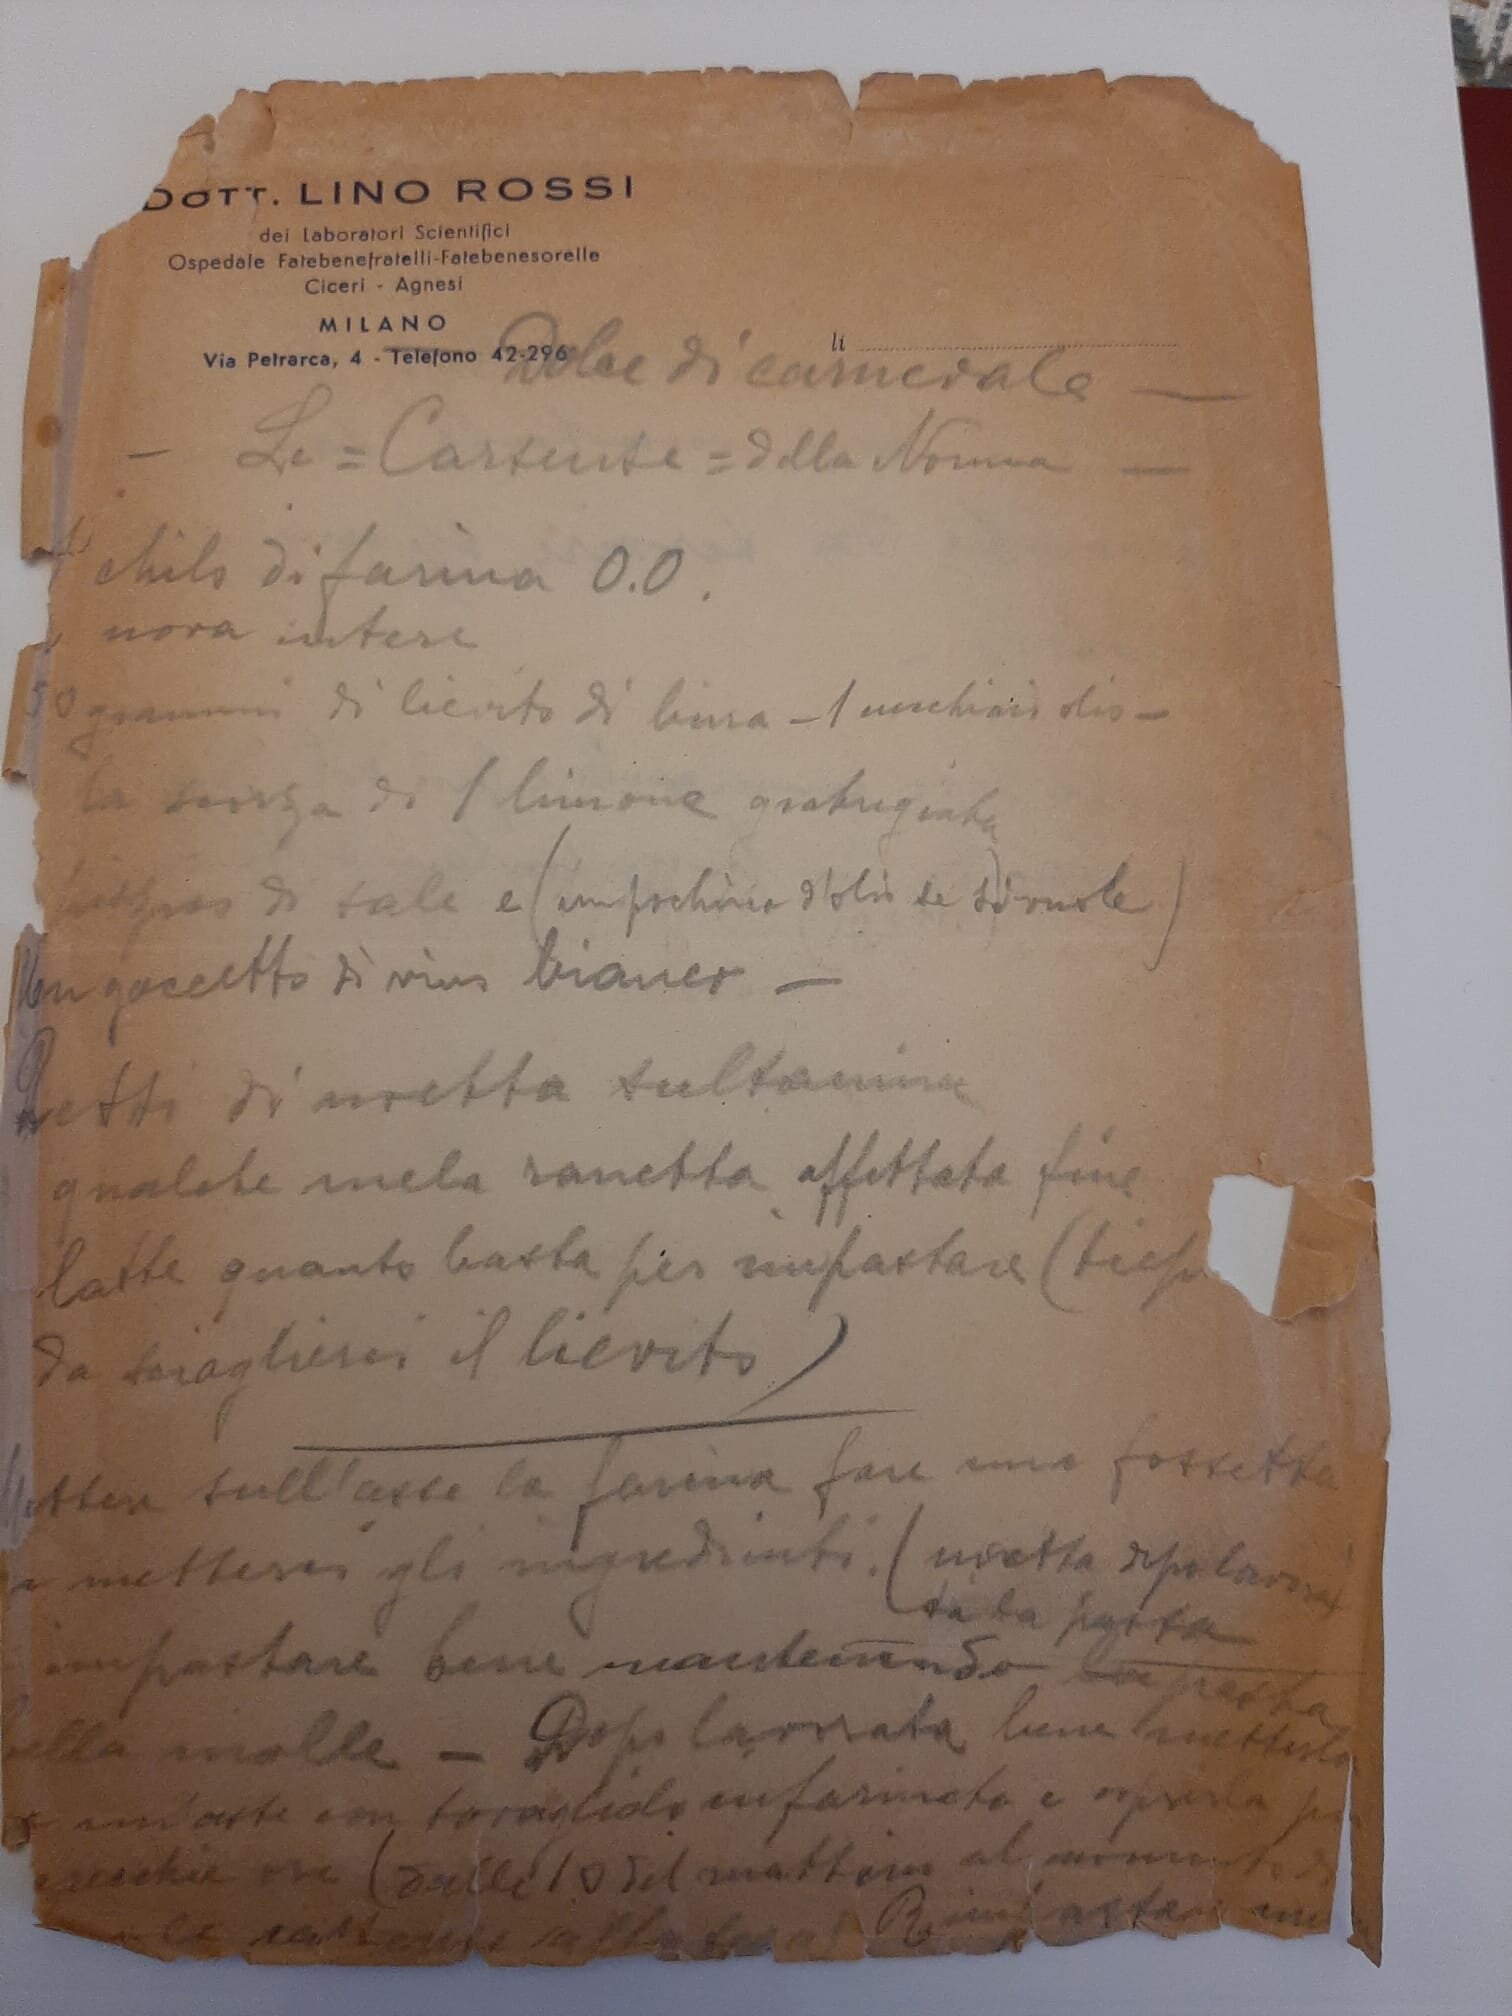 DOTT. LINO ROSSI
dei Laboratori Scientifici
Ospedale Fatebenefratelli-Fatebenesorelle
Ciceri - Agnesi
MILANO
Via Petrarca, 4 - Telefono 42-296
li
Dolce di carnevale —
— Le = Carsente = della Nonna —
chilo di farina 0.0.
uova intere
50 grammi di lievito di birra - 1 cucchiaio olio -
la scorza di 1 limone grattugiata
di sale e (un pochino d'olio se si vuole)
Un goccetto di vino bianco —
etti di uvetta sultanina
qualche mela ranetta affettata fine
latte quanto basta per impastare (tiep
da sciogliersi il lievito)
Mettere sull'asse la farina fare una fossetta
e metterci gli ingredienti. (uvetta dopo lavora
ta la pasta
impastare bene mantenendo la pasta
molle — Dopo lavorata bene metterla
un'asse con tovagliolo infarinato e coprirla
ore (dalle 10 del mattino al momento di
alla sera) Rimpastare